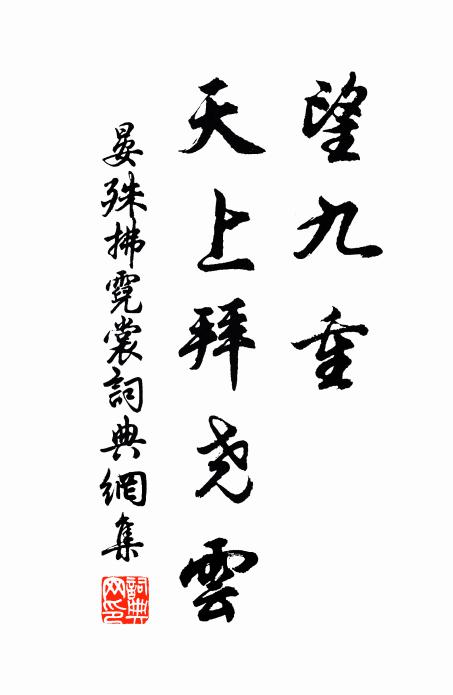 望九重
天上拜尧雲
晏殊拂霓裳詞典網集
詞典网印